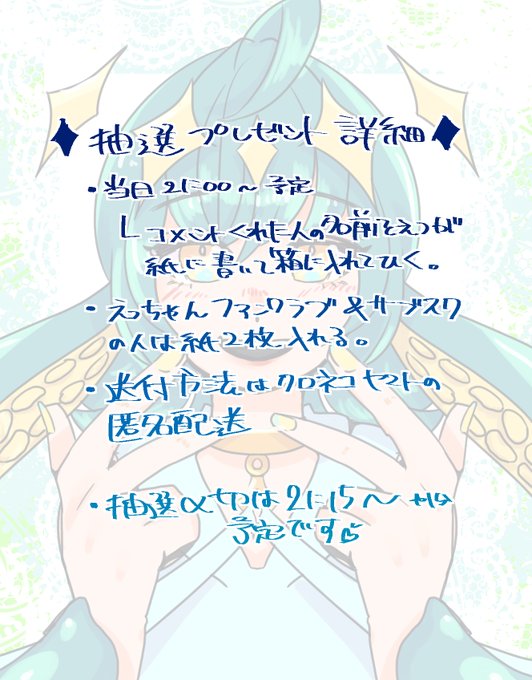 ◆抽選プレゼント詳細◆
・当日21:00〜予定
└コメントくれた人の名前をえつが
紙に書いて箱に入れてひく。
・えっちゃんファンクラブ&サブスク
の人は紙2枚入れる。
・送付方法はクロネコヤマトの
匿名配送
・抽選〆切は21:15〜
予定です